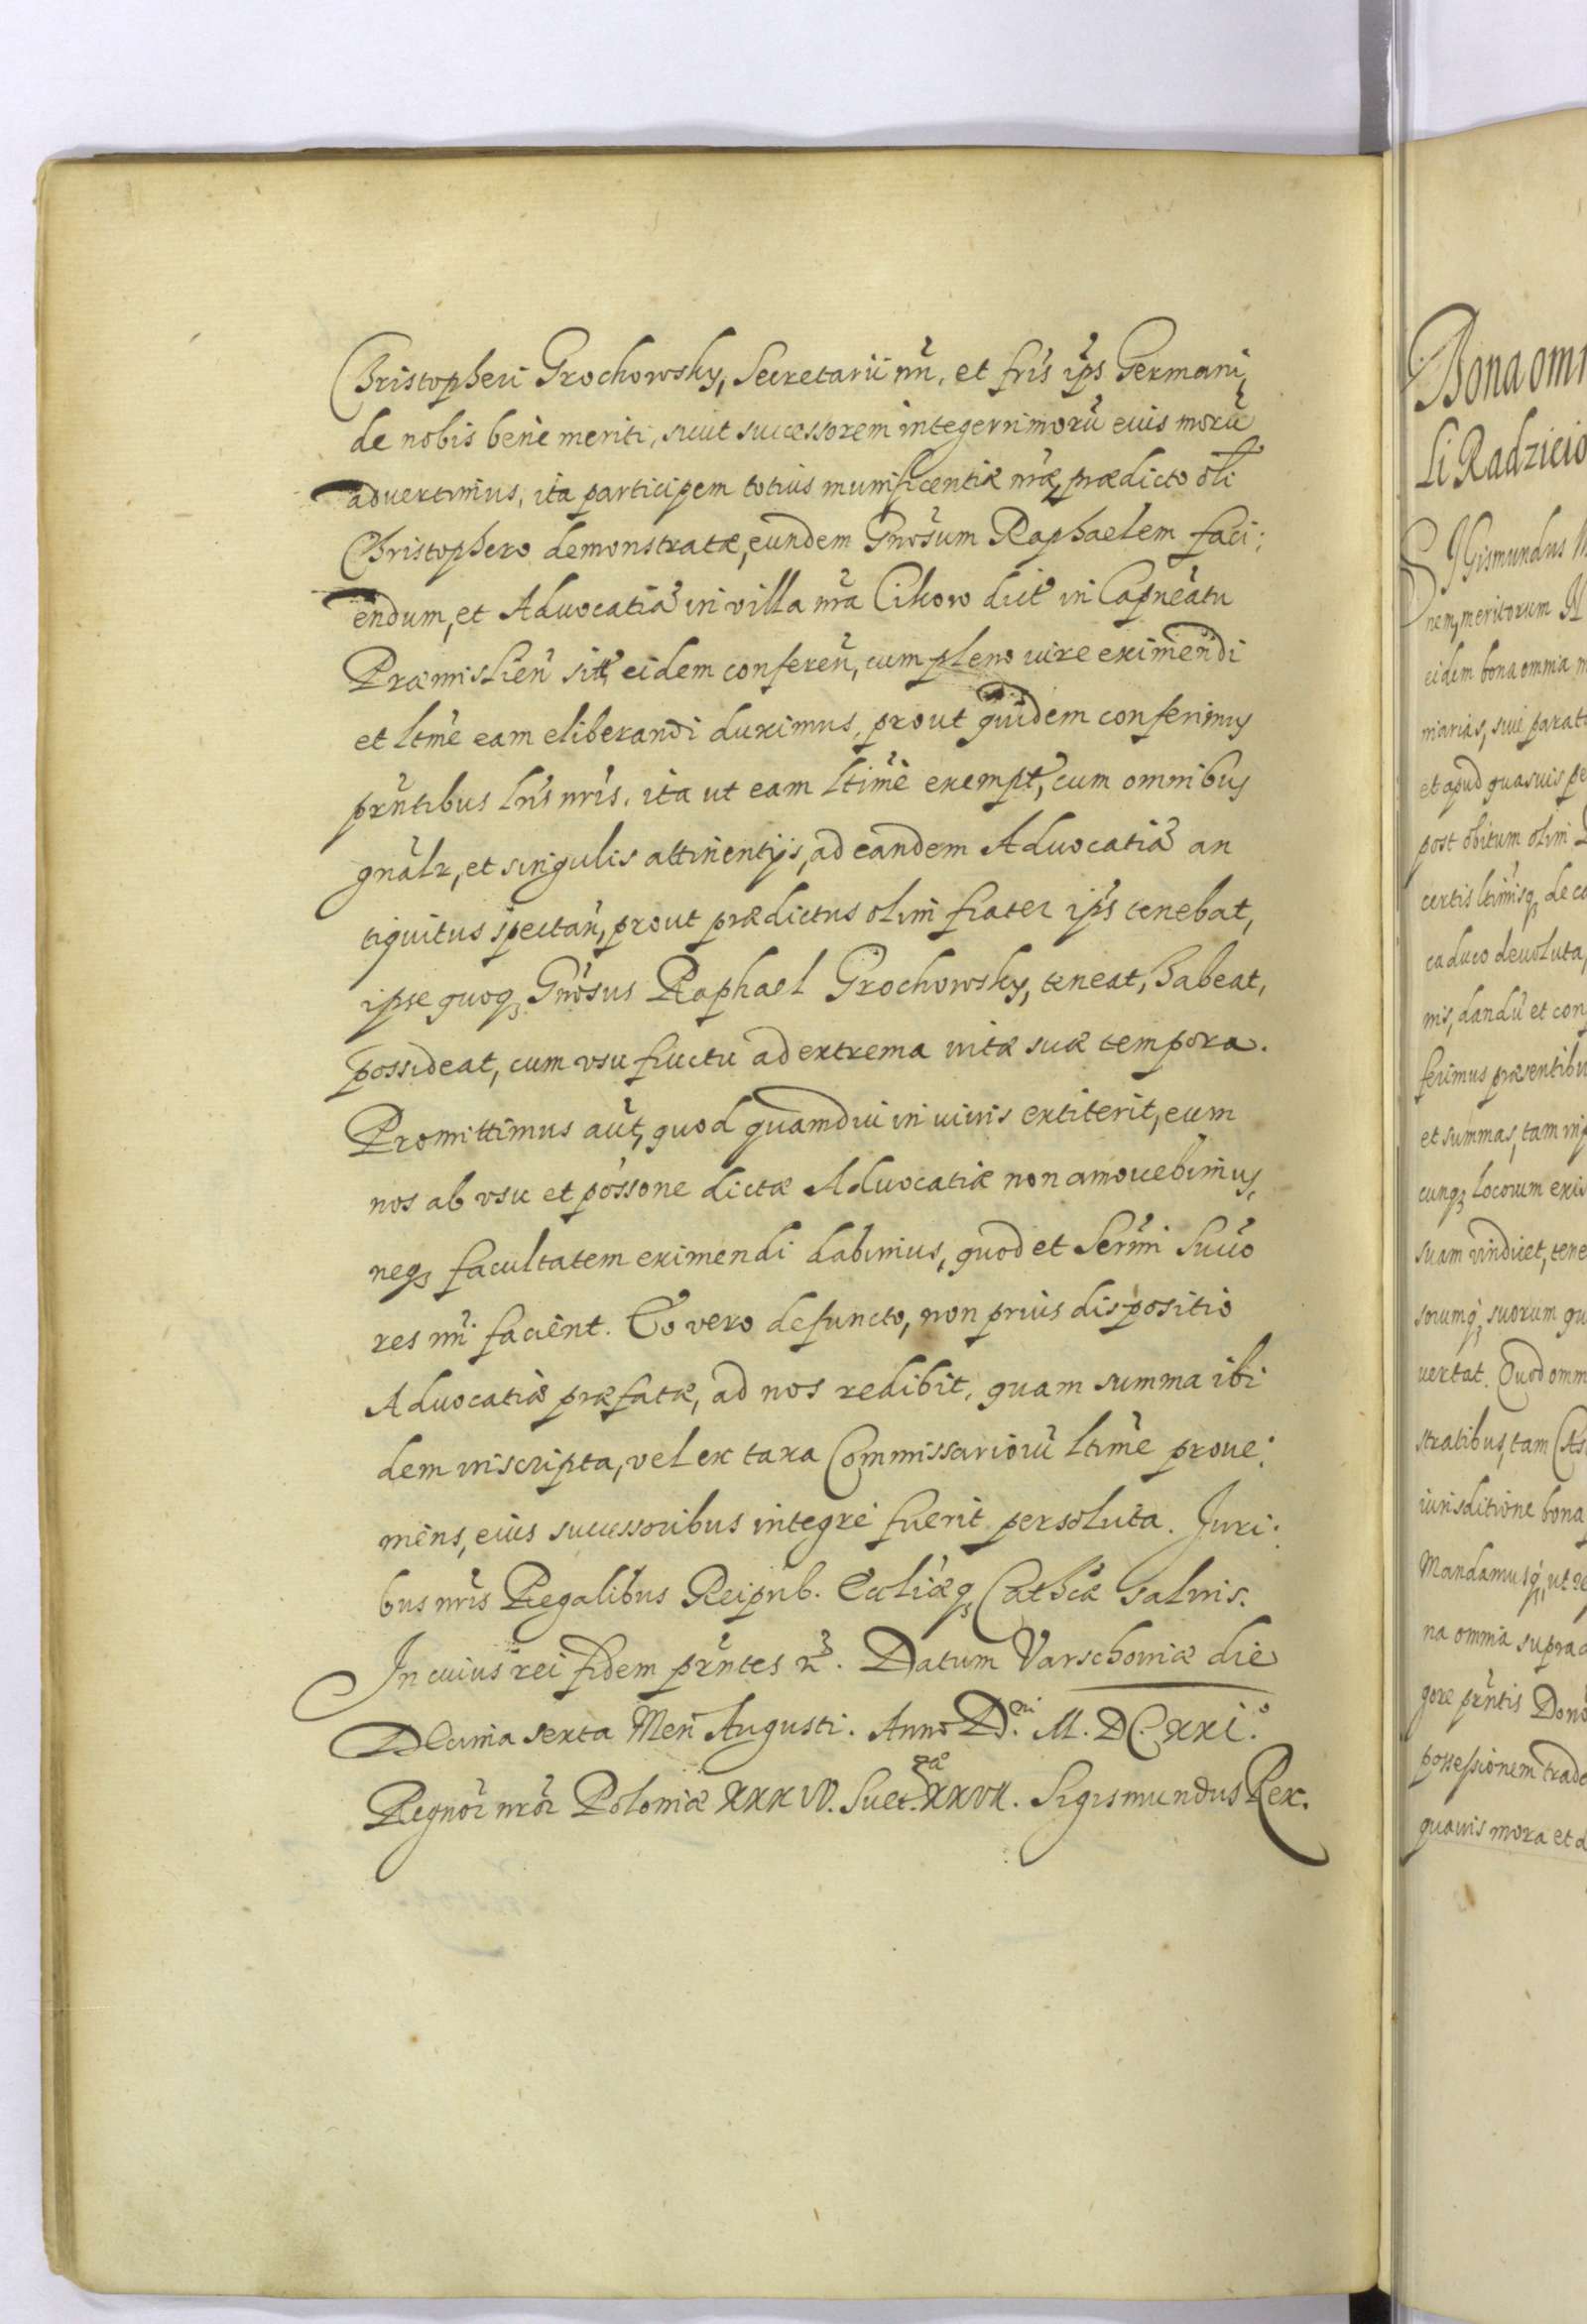 Christopheri Grochowsky, Secretarii nri, et fris ips Germani,
de nobis bene meriti, sicut successorem integerrimorũ eius morũ
advertimus, ita participem totius munificentiæ nræ, prædicto oli
Christophero demonstratæ, eundem Gnosum Raphaelem faci:
endum, et Advocatiã in villa nra Cikow dict in Capneatu
Præmislien sit, eidem conferen, cum pleno iure eximendi
et ltme eam eliberandi duximus, prout quidem conferimus
prntibus lris nris. ita ut eam ltime exempt, cum omnibus
gnalr, et singulis attinentijs, ad eandem Advocatiã an
tiquitus spectan, prout prædictus olim frater ips tenebat,
ipse quoq, Gnosus Raphael Grochowsky, teneat, habeat,
possideat, cum vsu fructu ad extrema vitæ suæ tempora.
Promittimus aut, quod quamdiu in vivis extiterit, eum
nos ab vsu et possone dictæ Advocatiæ non amovebimus,
neq, facultatem eximendi dabimus, quod et Sermi Succo
res nri facient. Eo vero defuncto, non prius dispositio
Advocatiæ præfatæ, ad nos redibit, quam summa ibi
dem inscripta, vel ex taxa Commissariorũ ltime prove:
niens, eius successoribus integre fuerit persoluta. Juri:
bus nris Regalibus Reipub. Ecliæq, Cathcæ salvis.
In cuius rei fidem prntes rc. Datum Varschoviæ die
Decima sexta Men Augusti. Anno Dni. M. DC. XXI.º
Regnor nror Poloniæ XXXIV. Suetzæ XXVII. Sigismundus Rex.
Bona omn
li Radzieio
Sigismundus
nem, meritorum N
eidem bona omnia m
niarias, sive parat
et apud quasvis pe
post obitum olim
certis ltimisq, de co
caduco devoluta,
mis, dandũ et con
ferimus præsentibu
et summas, tam inp
cunq, locorum exis
suam vindicet, tene
sorumq, suorum qu
vertat. Quod omn
stratibus, tam Cas
iurisditione bona
Mandamusq, ut re
na omnia suprad
gore prntis Dono
possessionem trade
quavis mora et d